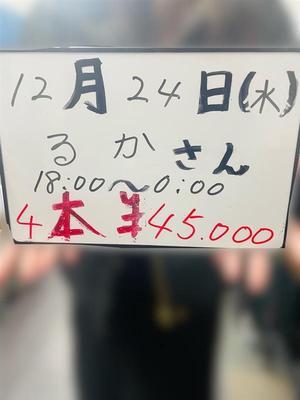 12月24日(水)
るかさん
18:00〜0:00
4本¥45.000